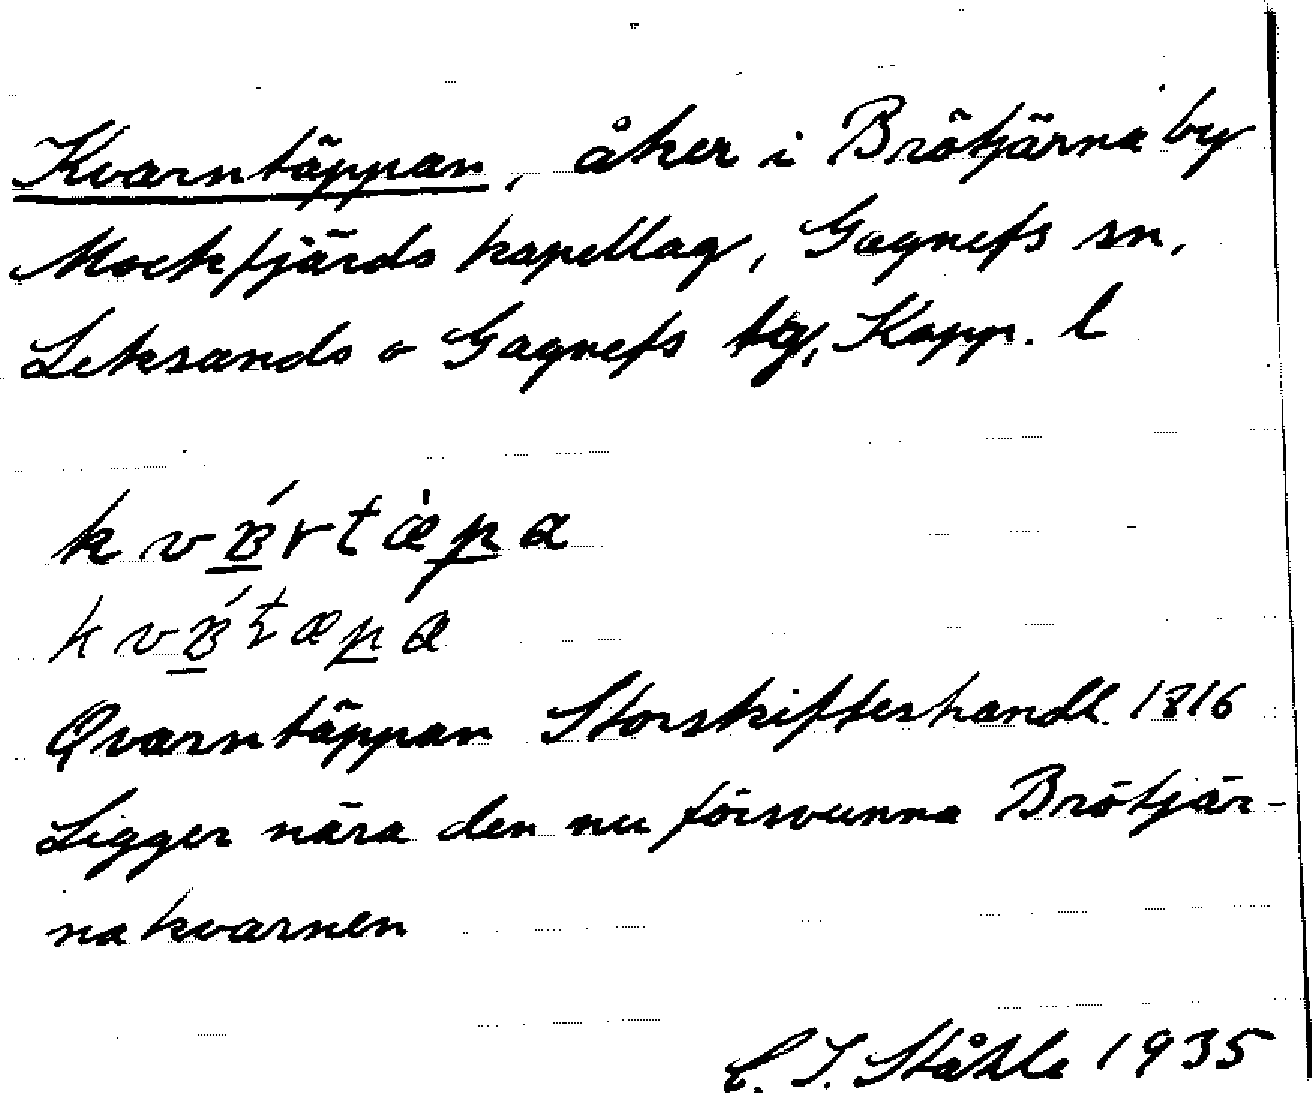 Kvarntäppan, åker i Brötjärna by
Mockfjärds kapellag, Gagnefs sn,
Leksands o Gagnefs tg, Kopp. l
Qvarntäppan Storskifteshandl 1816
Ligger nära den nu försvunna Brötjär-
nakvarnen
C. I. Ståhle 1935